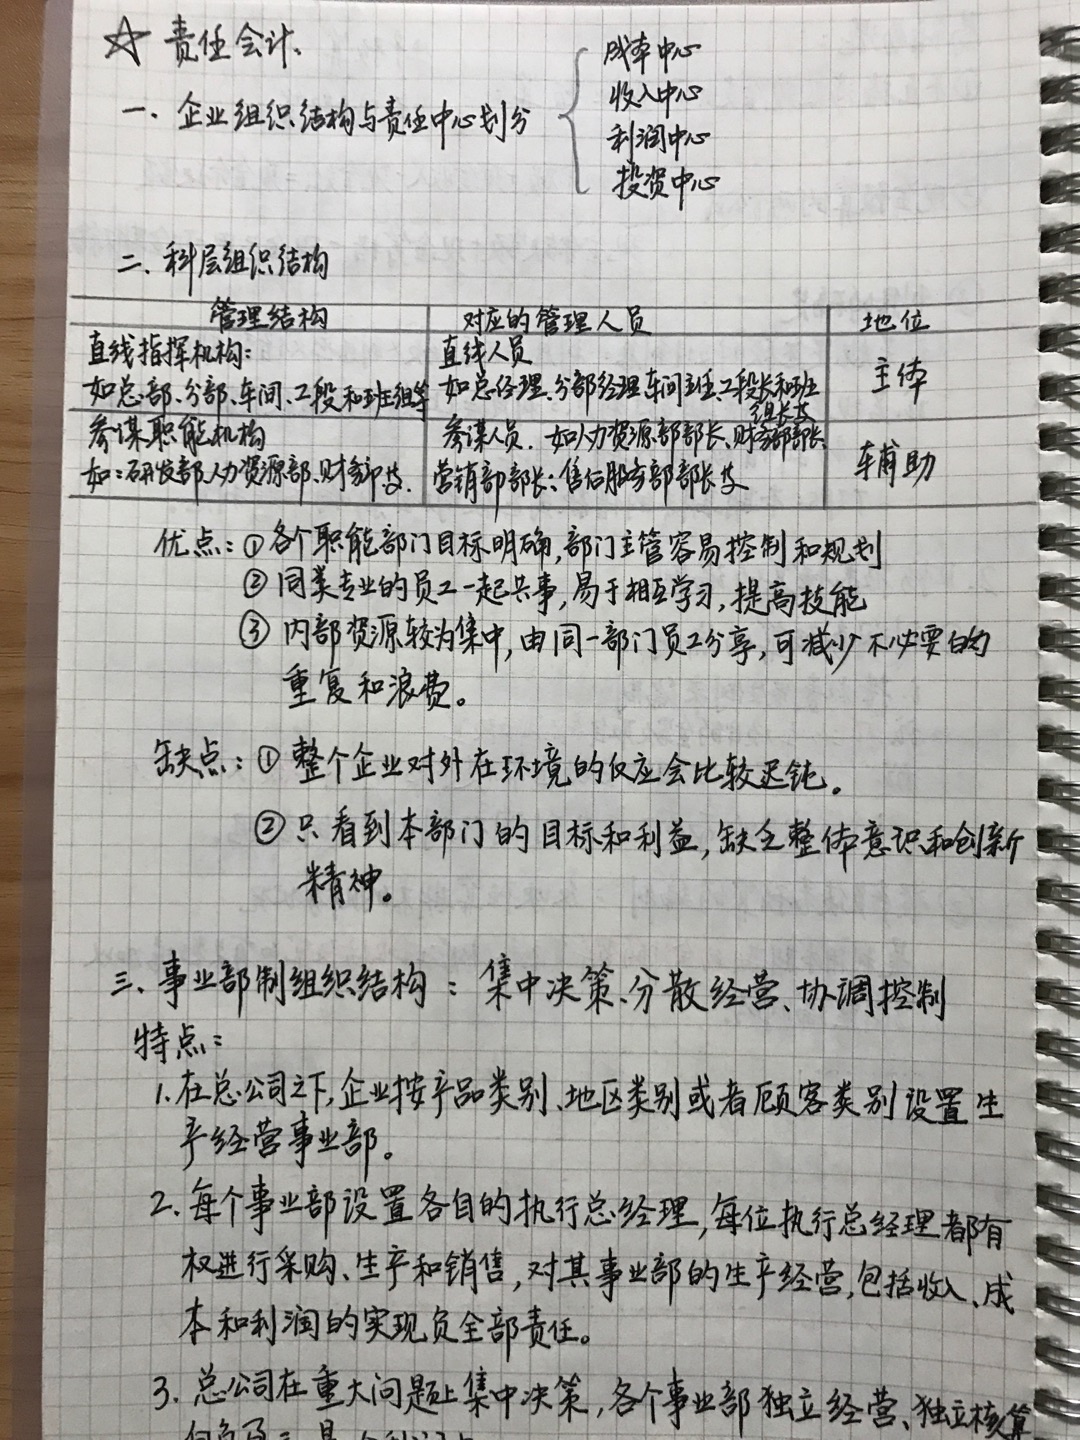 ☆ 责任会计、
一、企业组织结构与责任中心划分
成本中心
收入中心
利润中心
投资中心
二、科层组织结构
管理结构 对应的管理人员 地位
直线指挥机构: 直线人员 主体
如总部、分部、车间、工段和班组等 如总经理、分部经理、车间主任、工段长和班
组长等
参谋职能机构 参谋人员. 如人力资源部部长、财务部部长、 辅助
如:研发部、人力资源部、财务部等. 营销部部长;售后服务部部长等
优点:①各个职能部门目标明确,部门主管容易控制和规划
②同类专业的员工一起共事,易于相互学习,提高技能
③内部资源较为集中,由同一部门员工分享,可减少不必要的
重复和浪费。
缺点:①整个企业对外在环境的反应会比较迟钝。
②只看到本部门的目标和利益,缺乏整体意识和创新
精神。
三、事业部制组织结构:集中决策、分散经营、协调控制
特点:
1.在总公司之下,企业按产品类别、地区类别或者顾客类别设置生
产经营事业部。
2.每个事业部设置各自的执行总经理,每位执行总经理都有
权进行采购、生产和销售,对其事业部的生产经营,包括收入、成
本和利润的实现负全部责任。
3.总公司在重大问题上集中决策,各个事业部独立经营、独立核算